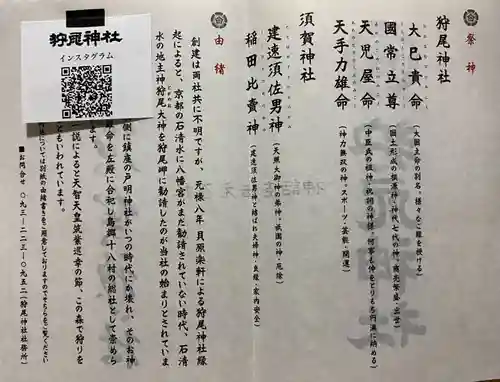 祭神
狩尾神社
大巳貴命
(大国主命の別名。様々なご縁を授ける)
國常立尊
(国土形成の根源神・神代七代の神。商売繁盛・出世)
天児屋命
(中臣氏の祖神・祝詞の神様。何事も仲をとりもち円満に納める)
天手力雄命
(神力無双の神。スポーツ・芸能・開運)
須賀神社
建速須佐男神
(天照大御神の弟神。祇園の神・厄除)
稲田比賣神
(建速須佐男神と結ばれ夫婦神・良縁・家内安全)
由緒
創建は両社共に不明ですが、元禄八年 貝原楽軒による狩尾神社縁
起によると、京都の石清水に八幡宮がまだ勧請されていない時代、石清
水の地主神狩尾大神を狩尾岬に勧請したのが当社の始まりとされていま
側に鎮座の戸明神社がいつの時代にか壊れ、そのお神
命を左殿に合祀し島郷十八村の総社として崇めら
ます。
説によると天智天皇筑紫巡幸の節、この森で狩りを
ともいわれています。
については別紙の由緒書きをご用意しておりますのでそちらをご覧ください
■お問合せ 〇九三-二二三-〇九五二(狩尾神社社務所)
狩尾神社
インスタグラム